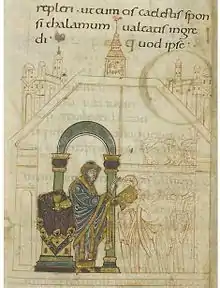 repleri · ut cum eo caelestis spon
si thalamum ualeatis ingre
di · quod ipse ·